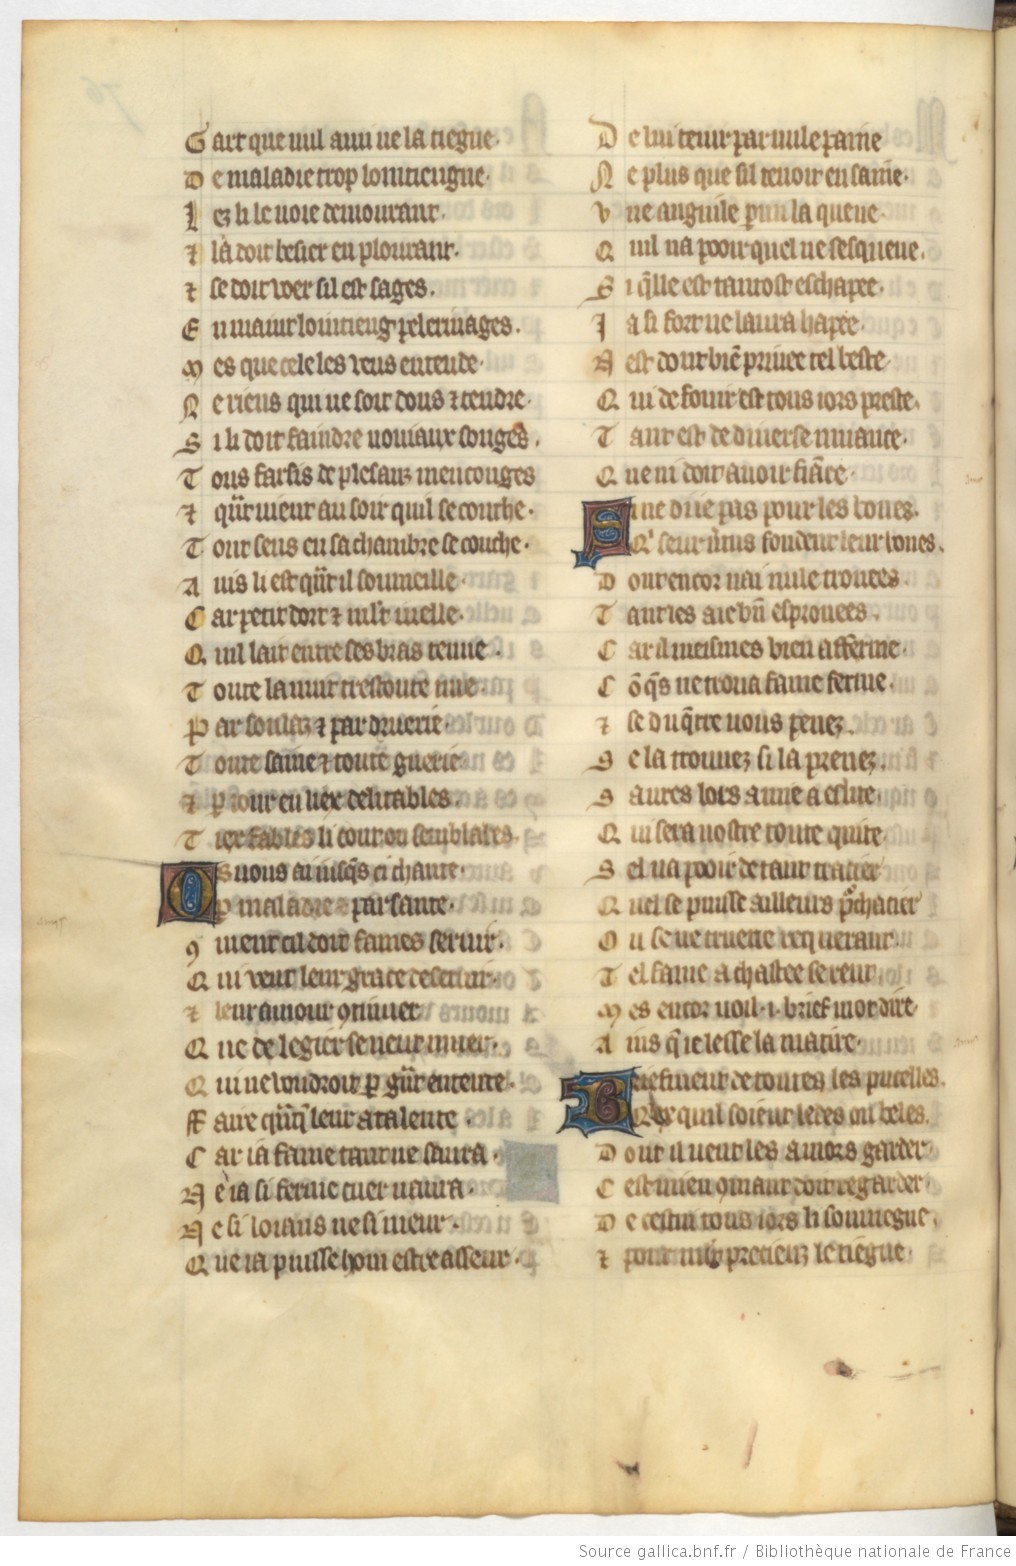 Gart que nul anui ne la tiegne
De maladie trop lointiengne
Lez li le voie demourant
⁊ là doit besier en plourant.
⁊ se doit voer sil est sages.
En maint lointieng pelerinages.
Mes que cele les veus entende
Ne riens qui ne soit dous ⁊ tendre
Si li doit faindre nouviaux songes.
Tous farsis de plesanz mencouges
⁊ qñt vient au soir quil se couche
Tout seus en sa chambre se couche
Auis li est qñt il soumeille
Car petit dort ⁊ mlt veille.
Quil lait entre ses bras tenue
Toute la nuit trestoute nue
Par soulaz ⁊ par druerie
Toute saine ⁊ toute guerie
⁊ p iour en liex delitables.
Tiex fables li cont ou semblables
Os vous ai iusqs ci chante
p malade ⁊ par sante.
9ment cil doit fames seruir.
Qui veut leur grace deseruir
⁊ leur amour 9tinuer
Que de legier se veut muer.
Qui ne voudroit p gñt entente
ffaire qñq leur atalente
Car ia fame tant ne saura
Ne ia si ferme cuer naura
Ne si loiaus ne si meur
Que ia puisse hom estre asseur
De lui tenir par nule paine
Ne plus que sil tenoit en saine
Une anguile parmi la queue
Quil na pooir quel ne sesqueue.
Si qlle est tantost eschapee
Ja si fort ne laura hapee
Nest dont biē priuee tel beste
Qui de fouir est tous iors preste.
Tant est de diuerse muance
Que ni doit auoir fiāce
Si ne di ie pas pour les bones
Q seur ũtus fondent leur bones.
Dont encor nai nule trouees
Tant les aie bñ esprouees.
Car il meismes bien afferme
Cōqs ne troua fame ferme.
⁊ se du qrre vous penez
Se la trouuez si la prenez.
Saures lors amie a eslite.
Qui sera vostre toute quite
Sel na pooir de tant tracier
Quel se puisse ailleurs prchacier
Ou se ne trueue requerant
Tel fame a chastee se rent
Mes encor voil .i. brief mot dire
Ains q ie lesse la matire
Briefment de toutes les pucelles.
Quex quil soient ledes ou beles.
Dont il veut les amors garder
Cest mien 9mant doit regarder
De cestui tous iors li souuiegne
⁊ pour mlt precieux le tiegne